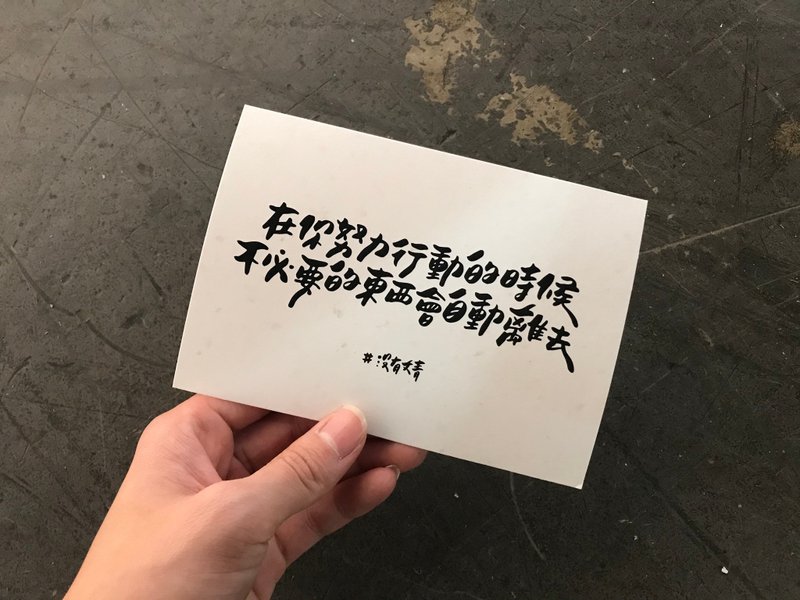 在你努力行動的時候
不必要的東西會自動離去
#沒有文青